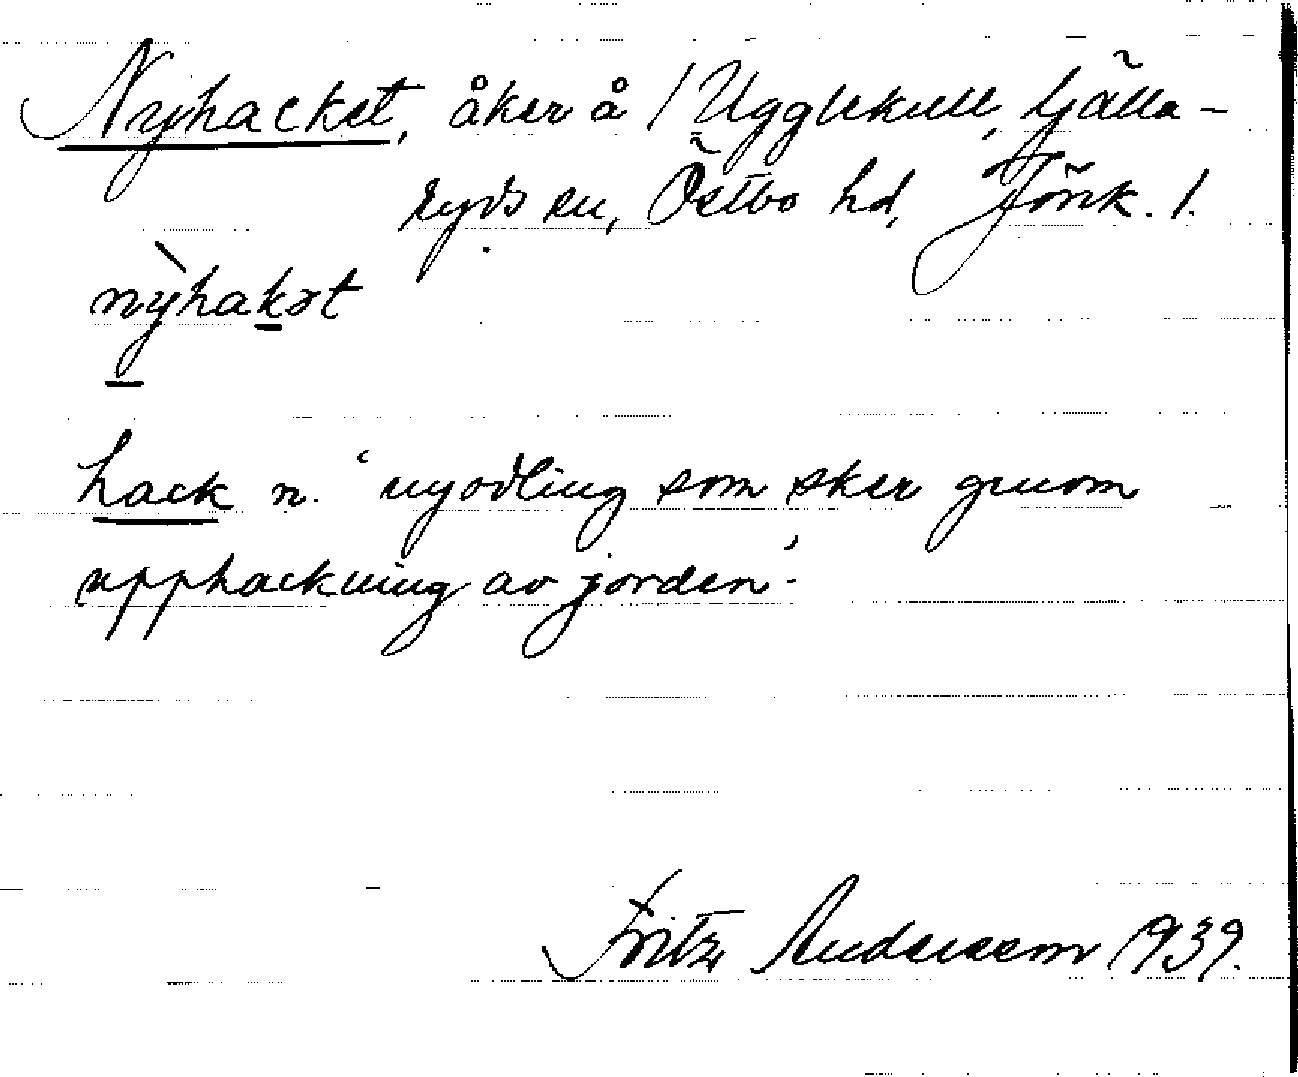 Nyhacket, åker å / Ugglekull, Kjälla-
ryds sn, Östbo hd, Jönk. l.
nỳhakət
hack n. ‘nyodling som sker genom
upphackning av jorden’.
Fritz Andersson 1939.